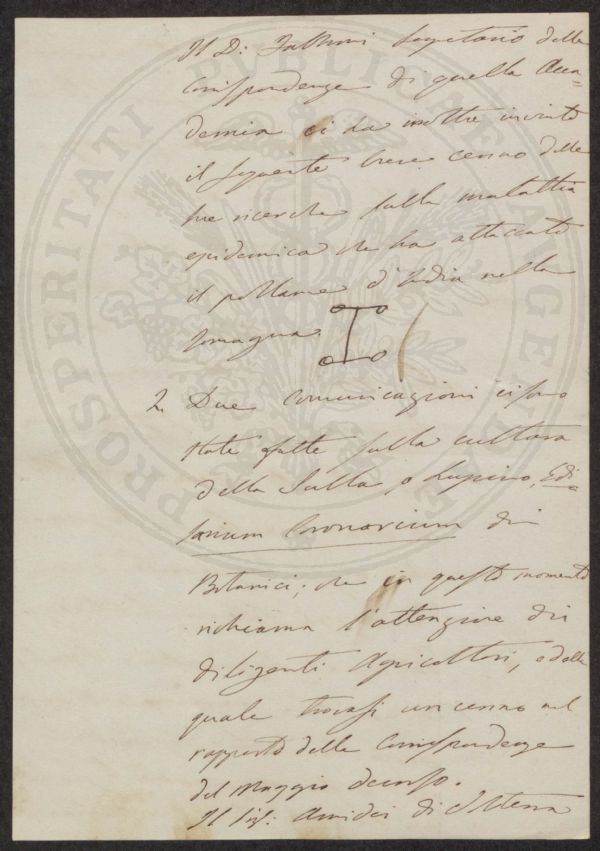 Il D: Segretario delle
Corrispondenze di quella Acca=
demia ci ha inoltre inviato
il seguente breve cenno delle
sue ricerche sulla malattia
epidemica che ha attaccato
il pollame d'India nella
Romagna
2. Due Comunicazioni ci sono
state fatte sulla cultura
della Sulla, o Lupino, Edi=
sarium Coronarium dei
Botanici; che in questo momento
richiama l'attenzione dei
diligenti Agricoltori, e della
quale trovasi un cenno nel
rapporto delle Corrispondenze
del Maggio decorso.
Il Sig: Amidei di
PROSPERITATI PUBLICAE AUGENDAE